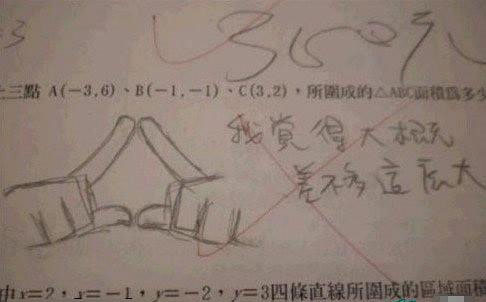 =3
350元
上三點 A(-3,6)、B(-1,-1)、C(3,2)，所圍成的△ABC面積為多少
我覺得大概
差不多這麼大
由x=2，x=-1，y=-2，y=3四條直線所圍成的區域面積